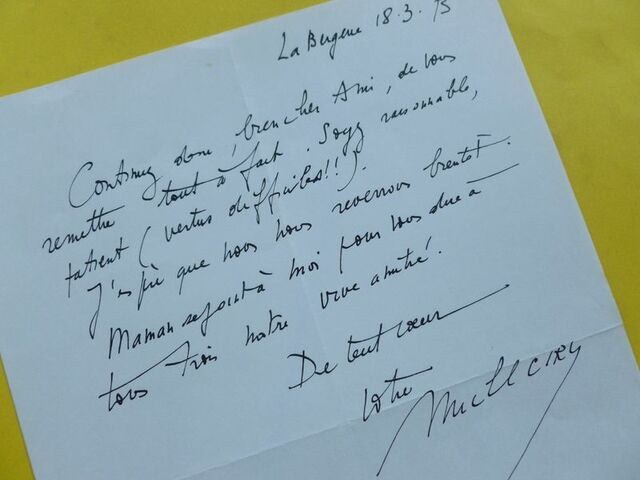 La Bergerie 18.3.75
Continuez donc, bien cher Ami, de vous
remettre tout à fait. Soyez raisonnable,
patient (vertus difficiles!!).
J'espère que nous nous reverrons bientôt.
Maman se joint à moi pour vous dire à
tous trois notre vive amitié.
De tout cœur
Votre
Michel CIRY